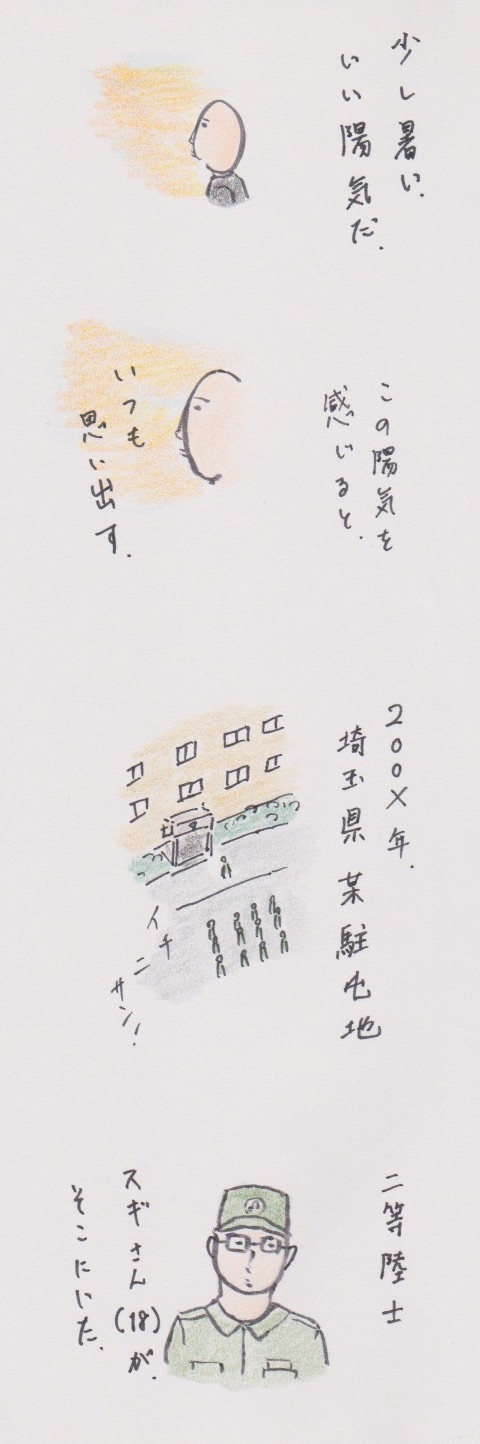 少し暑い.
いい陽気だ.
この陽気を
感じると.
いつも
思い出す.
200X年.
埼玉県 某駐屯地
イチ
ニ
サン!
二等陸士
スギさん(18)が.
そこにいた.